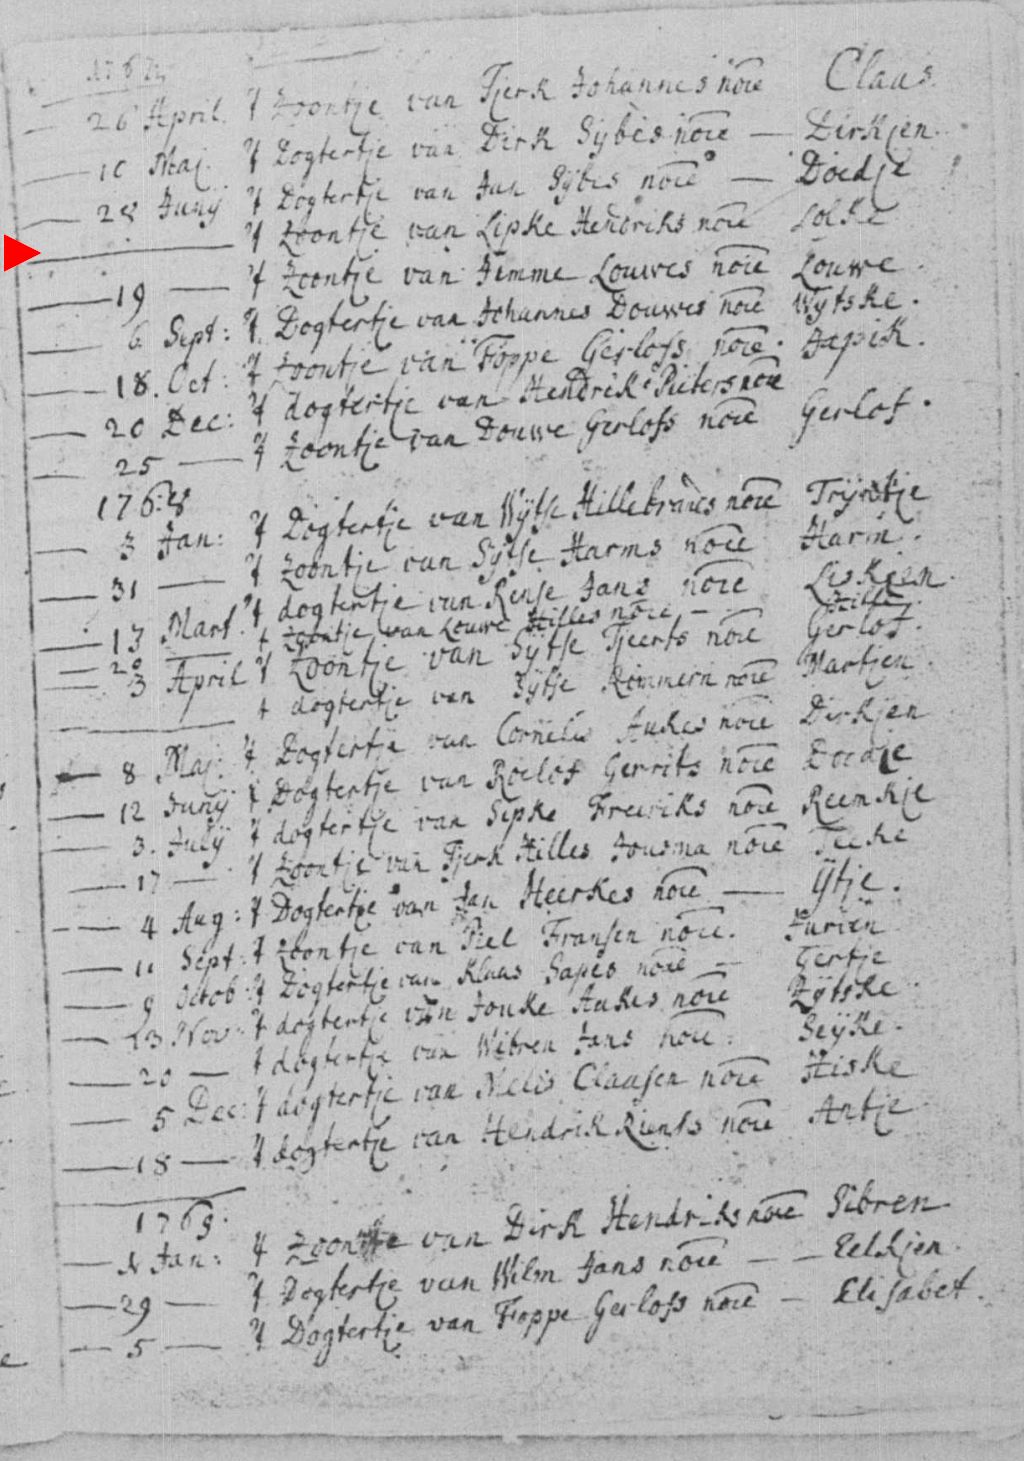 26 April. 't Zoontje van Tjerk Johannes noie Claas.
10 Maj. 't Dogtertje van Dirk Sybes noie — Dirkjen.
28 Junij 't Dogtertje van Jan Sybes noie — Doedje
— 't Zoontje van Lipke Hendriks noie Lolke
19 — 't Zoontje van Jemme Louwes noie Louwe.
6 Sept: 't Dogtertje van Johannes Douwes noie Wytske.
18. Oct: 't Zoontje van Foppe Gerlofs noie. Japik.
20 Dec: 't dogtertje van Hendrik Pieters noie
25 — 't Zoontje van Douwe Gerlofs noie Gerlof.
1768
3 Jan: 't Dogtertje van Wytse Hillebrands noie Trijntje
31 — 't Zoontje van Sytse Harms noie Harm.
13 Mart. 't dogtertje van Rense Jans noie Liskjen.
20 — 't Zoontje van Louwe Hilles noie — Hille.
3 April 't Zoontje van Sytse Tjeerts noie Gerlof.
— 't dogtertje van Sytse Rimmern noie Martjen.
8 Maj: 't Dogtertje van Cornelis Aukes noie Dirkjen
12 Junij 't Dogtertje van Roelof Gerrits noie Doedje
3. Julij 't dogtertje van Sepke Freeriks noie Reemkje
17 — 't Zoontje van Tjerk Hilles Jousma noie Teeke
4 Aug: 't Dogtertje van Jan Heerkes noie — Ytje.
11 Sept: 't Zoontje van Piel Fransen noie. Jurien
9 Octob: 't Dogtertje van Klaas Sapes noie — Gertje
13 Nov: 't dogtertje van Jouke Aukes noie Zytske
20 — 't dogtertje van Wibren Jans noie: Seyke.
5 Dec: 't dogtertje van Melis Claasen noie Hiske
18 — 't dogtertje van Hendrik Rients noie Antje
1769.
Jan: 't Zoontje van Dirk Hendriks noie Sibren
29 — 't Dogtertje van Wilm Jans noie — — Eelkjen.
5 — 't Dogtertje van Foppe Gerlofs noie — Elisabet.